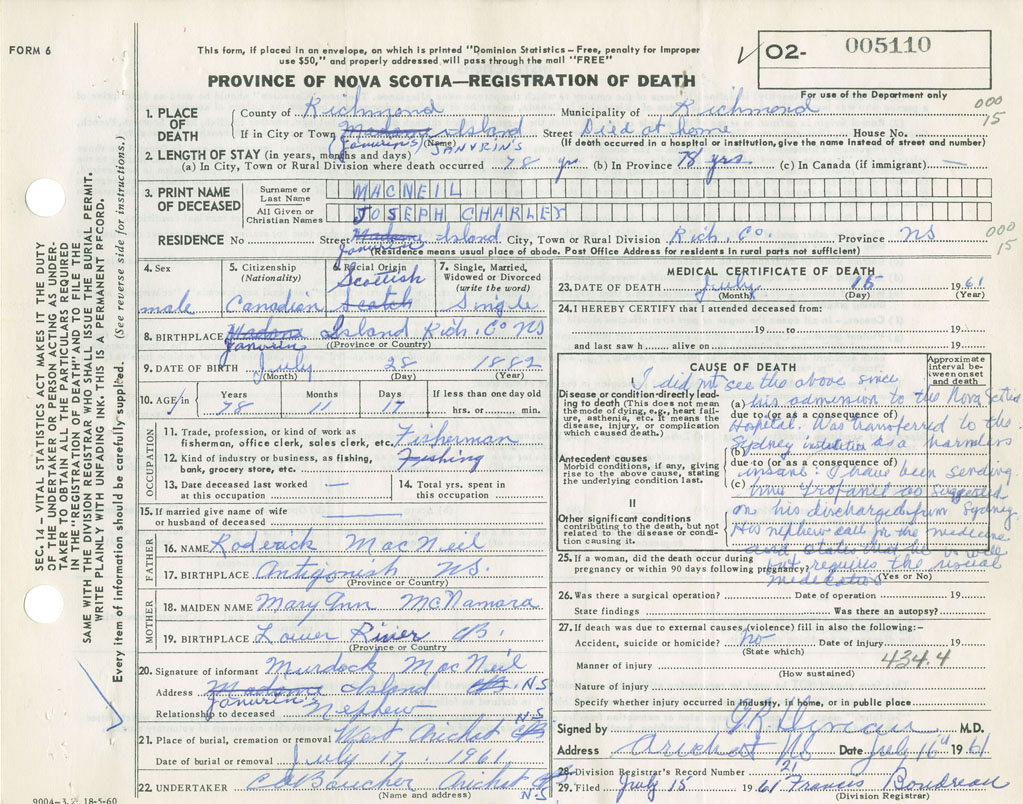 FORM 6
This form, if placed in an envelope, on which is printed "Dominion Statistics – Free, penalty for improper
use $50," and properly addressed will pass through the mail "FREE"
PROVINCE OF NOVA SCOTIA—REGISTRATION OF DEATH
02- 005110
For use of the Department only
000
15
1. PLACE OF DEATH
County of Richmond Municipality of Richmond
If in City or Town Madame Island Street Died at home House No.
(Name) (If death occurred in a hospital or institution, give the name instead of street and number)
(JANVRIN'S) JANVRIN'S
2. LENGTH OF STAY (in years, months and days)
(a) In City, Town or Rural Division where death occurred 78 yrs (b) In Province 78 yrs (c) In Canada (if immigrant) —
3. PRINT NAME OF DECEASED
Surname or Last Name MACNEIL
All Given or Christian Names JOSEPH CHARLEY
RESIDENCE No Street Madame Island City, Town or Rural Division Rich. Co. Province NS
Janvrin (Residence means usual place of abode. Post Office Address for residents in rural parts not sufficient)
000
15
4. Sex male
5. Citizenship (Nationality) Canadian
6. Racial Origin Scottish Scotch
7. Single, Married, Widowed or Divorced (write the word) Single
8. BIRTHPLACE Madame Island Rich. Co NS
Janvrin (Province or Country)
9. DATE OF BIRTH July 28 1882
(Month) (Day) (Year)
10. AGE Years Months Days If less than one day old
78 11 17 hrs. or min.
OCCUPATION
11. Trade, profession, or kind of work as fisherman, office clerk, sales clerk, etc. Fisherman
12. Kind of industry or business, as fishing, bank, grocery store, etc. Fishing
13. Date deceased last worked at this occupation —
14. Total yrs. spent in this occupation
15. If married give name of wife or husband of deceased —
FATHER
16. NAME Roderick MacNeil
17. BIRTHPLACE Antigonish NS.
(Province or Country)
MOTHER
18. MAIDEN NAME Mary Ann McNamara
19. BIRTHPLACE Lower River CB.
(Province or Country)
20. Signature of informant Murdock MacNeil
Address Madame Island CB. N.S
Janvrin
Relationship to deceased Nephew
21. Place of burial, cremation or removal West Arichat CB N.S
Date of burial or removal July 17, 1961
22. UNDERTAKER C Boucher Arichat CB N.S
(Name and address)
9004-3. 18-5-60
MEDICAL CERTIFICATE OF DEATH
23. DATE OF DEATH July 15 1961
(Month) (Day) (Year)
24. I HEREBY CERTIFY that I attended deceased from:
19 to 19
and last saw h alive on 19
CAUSE OF DEATH
Approximate interval between onset and death
Disease or condition directly leading to death (This does not mean the mode of dying, e.g., heart failure, asthenia, etc. It means the disease, injury, or complication which caused death.)
(a)
due to (or as a consequence of)
(b)
Antecedent causes
Morbid conditions, if any, giving rise to the above cause, stating the underlying condition last.
due to (or as a consequence of)
(c)
II
Other significant conditions
contributing to the death, but not related to the disease or condition causing it.
I did not see the above since
his admission to the Nova Scotia
Hospital. Was transferred to the
Sydney institution as a harmless
insane. I have been sending
him as suggested
on his discharge from Sydney.
His nephew call for the medicine
and states that he is well
but requires the usual
medication
25. If a woman, did the death occur during pregnancy or within 90 days following pregnancy?
(Yes or No)
26. Was there a surgical operation? Date of operation 19
State findings Was there an autopsy?
27. If death was due to external causes (violence) fill in also the following:-
Accident, suicide or homicide? No Date of injury 19
(State which)
Manner of injury 434.4
(How sustained)
Nature of injury
Specify whether injury occurred in industry, in home, or in public place
Signed by M.D.
Address Arichat NS Date July 16th 1961
28. Division Registrar's Record Number 21
29. Filed July 15 1961 Francis Boudreau
(Division Registrar)
SEC. 14 – VITAL STATISTICS ACT MAKES IT THE DUTY
OF THE UNDERTAKER OR PERSON ACTING AS UNDER-
TAKER TO OBTAIN ALL THE PARTICULARS REQUIRED
IN THE "REGISTRATION OF DEATH" AND TO FILE THE
SAME WITH THE DIVISION REGISTRAR WHO SHALL ISSUE THE BURIAL PERMIT.
WRITE PLAINLY WITH UNFADING INK. THIS IS A PERMANENT RECORD.
Every item of information should be carefully supplied. (See reverse side for instructions.)